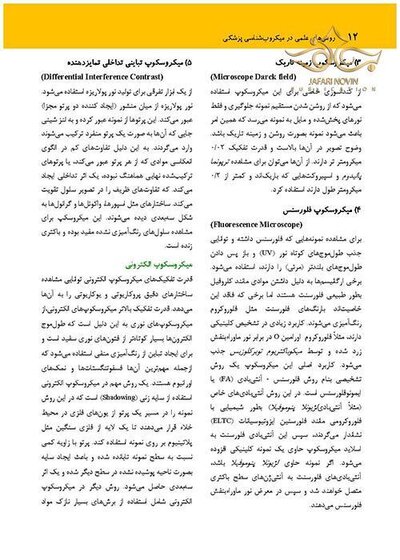 ۱۲ روش‌های علمی در میکروب‌شناسی پزشکی
JAFARI NOVIN
۳) میکروسکوپ زمینه تاریک
(Microscope Darck field)
از کندانسوری خاصی برای این میکروسکوپ استفاده
می‌شود که از روشن شدن مستقیم نمونه جلوگیری و فقط
نورهای پخش‌شده و مایل به نمونه می‌رسد که همین امر
باعث می‌شود نمونه بصورت روشن و زمینه تاریک باشد.
وضوح تصویر در آن‌ها بالاست و قدرت تفکیک ۰/۰۲
میکرومتر تر دارند. از آن‌ها می‌توان برای مشاهده تریپونما
پالیدوم و اسپیروکت‌هایی که باریک‌اند و کمتر از ۰/۲
میکرومتر طول دارند استفاده کرد.
۴) میکروسکوپ فلورسنس
(Fluorescence Microscope)
برای مشاهده نمونه‌هایی که فلورسنس داشته و توانایی
جذب طول‌موج‌های کوتاه نور (UV) و باز پس دادن
طول‌موج‌های بلندتر (مرئی) را دارند، استفاده می‌شود.
برخی ارگلیسم‌ها به دلیل داشتن موادی مانند کلروفیل
بطور طبیعی فلورسنت هستند اما برخی که فاقد این
خاصیت‌اند بارنگ‌های فلورسنت مثل فلوروکروم
رنگ‌آمیزی می‌شوند. کاربرد زیادی در تشخیص کلینیکی
دارند، مثلاً فلوروکروم اورامین O در برابر نور ماوراءبنفش
زرد شده و توسط میکوباکتریوم توبرکلوزیس جذب
می‌شود. کاربرد اصلی این میکروسکوپ یک روش
تشخیصی بنام روش فلورسنس - آنتی‌بادی (FA) یا
ایمونوفلورسنس است. در این روش آنتی‌بادی‌های خاص
(مثلاً آنتی‌بادی لژیونلا پنوموفیلا) بطور شیمیایی با
فلوروکرومی مانند فلورستین ایزوتیوسیانات (ELTC)
نشاندار می‌گردند، سپس این آنتی‌بادی فلورسنت به
اسلاید میکروسکوپ حاوی یک نمونه کلینیکی افزوده
می‌شود. اگر نمونه حاوی لژیونلا پنوموفیلا باشد،
آنتی‌بادی‌های فلورسنت به آنتی‌ژن‌های سطح باکتری
متصل خواهند شد و سپس در معرض نور ماوراءبنفش
فلورسنس می‌دهند.
۵) میکروسکوپ تباینی تداخلی تمایزدهنده
(Differential Interference Contrast)
از یک ابزار تفرقی برای تولید نور پولاریزه استفاده می‌شود.
نور پولاریزه از میان منشور (ایجاد کننده دو پرتو مجزا)
عبور می‌کند. این پرتوها از نمونه عبور کرده و به لنز شیئی
جایی که آن‌ها به صورت یک پرتو منفرد ترکیب می‌شوند
وارد می‌گردند. به این دلیل تفاوت‌های کم در الگوی
انعکاسی موادی که از هر پرتو عبور می‌کند، یا پرتوهای
ترکیب‌شده نهایی هماهنگ نبوده، یک اثر تداخلی ایجاد
می‌کند که تفاوت‌های ظریف را در تصویر سلول تقویت
می‌کند. ساختارهای مثل اسپورها، واکوئل‌ها و گرانول‌ها به
شکل سه‌بعدی دیده می‌شوند. این میکروسکپ برای
مشاهده سلول‌های رنگ‌آمیزی نشده مفید بوده و باکتری
زنده است.
میکروسکوپ الکترونی
قدرت تفکیک‌های میکروسکوپ الکترونی توانایی مشاهده
ساختارهای دقیق پروکاریوتی و یوکاریوتی را به آن‌ها
می‌دهد. قدرت تفکیک بالاتر میکروسکوپ‌های الکترونی،از
میکروسکوپ‌های نوری به این دلیل است که طول‌موج
الکترون‌ها بسیار کوتاه‌تر از فتون‌های نوری سفید است و
برای ایجاد تباین از رنگ‌آمیزی منفی استفاده می‌شود که
ازجمله مهم‌ترین آن‌ها فسفوتنگستات‌ها و نمک‌های
اورانیوم هستند. یک روش مهم در میکروسکوپ الکترونی
استفاده از سایه زنی (Shadowing) است که در این روش
نمونه را در مسیر یک پرتو از یون‌های فلزی در محیط
خلاء قرار می‌دهند تا یک لایه از فلزی سنگین مثل
پلاتینیوم بر روی نمونه استفاده کند. پرتو با زاویه کمی
نسبت به سطح نمونه تابانده شده و باعث ایجاد سایه
بصورت ناحیه پوشیده نشده در سطح دیگر شده و یک اثر
سه‌بعدی حاصل می‌شود. روش دیگر در میکروسکوپ
الکترونی شامل استفاده از برش‌های بسیار نازک مواد